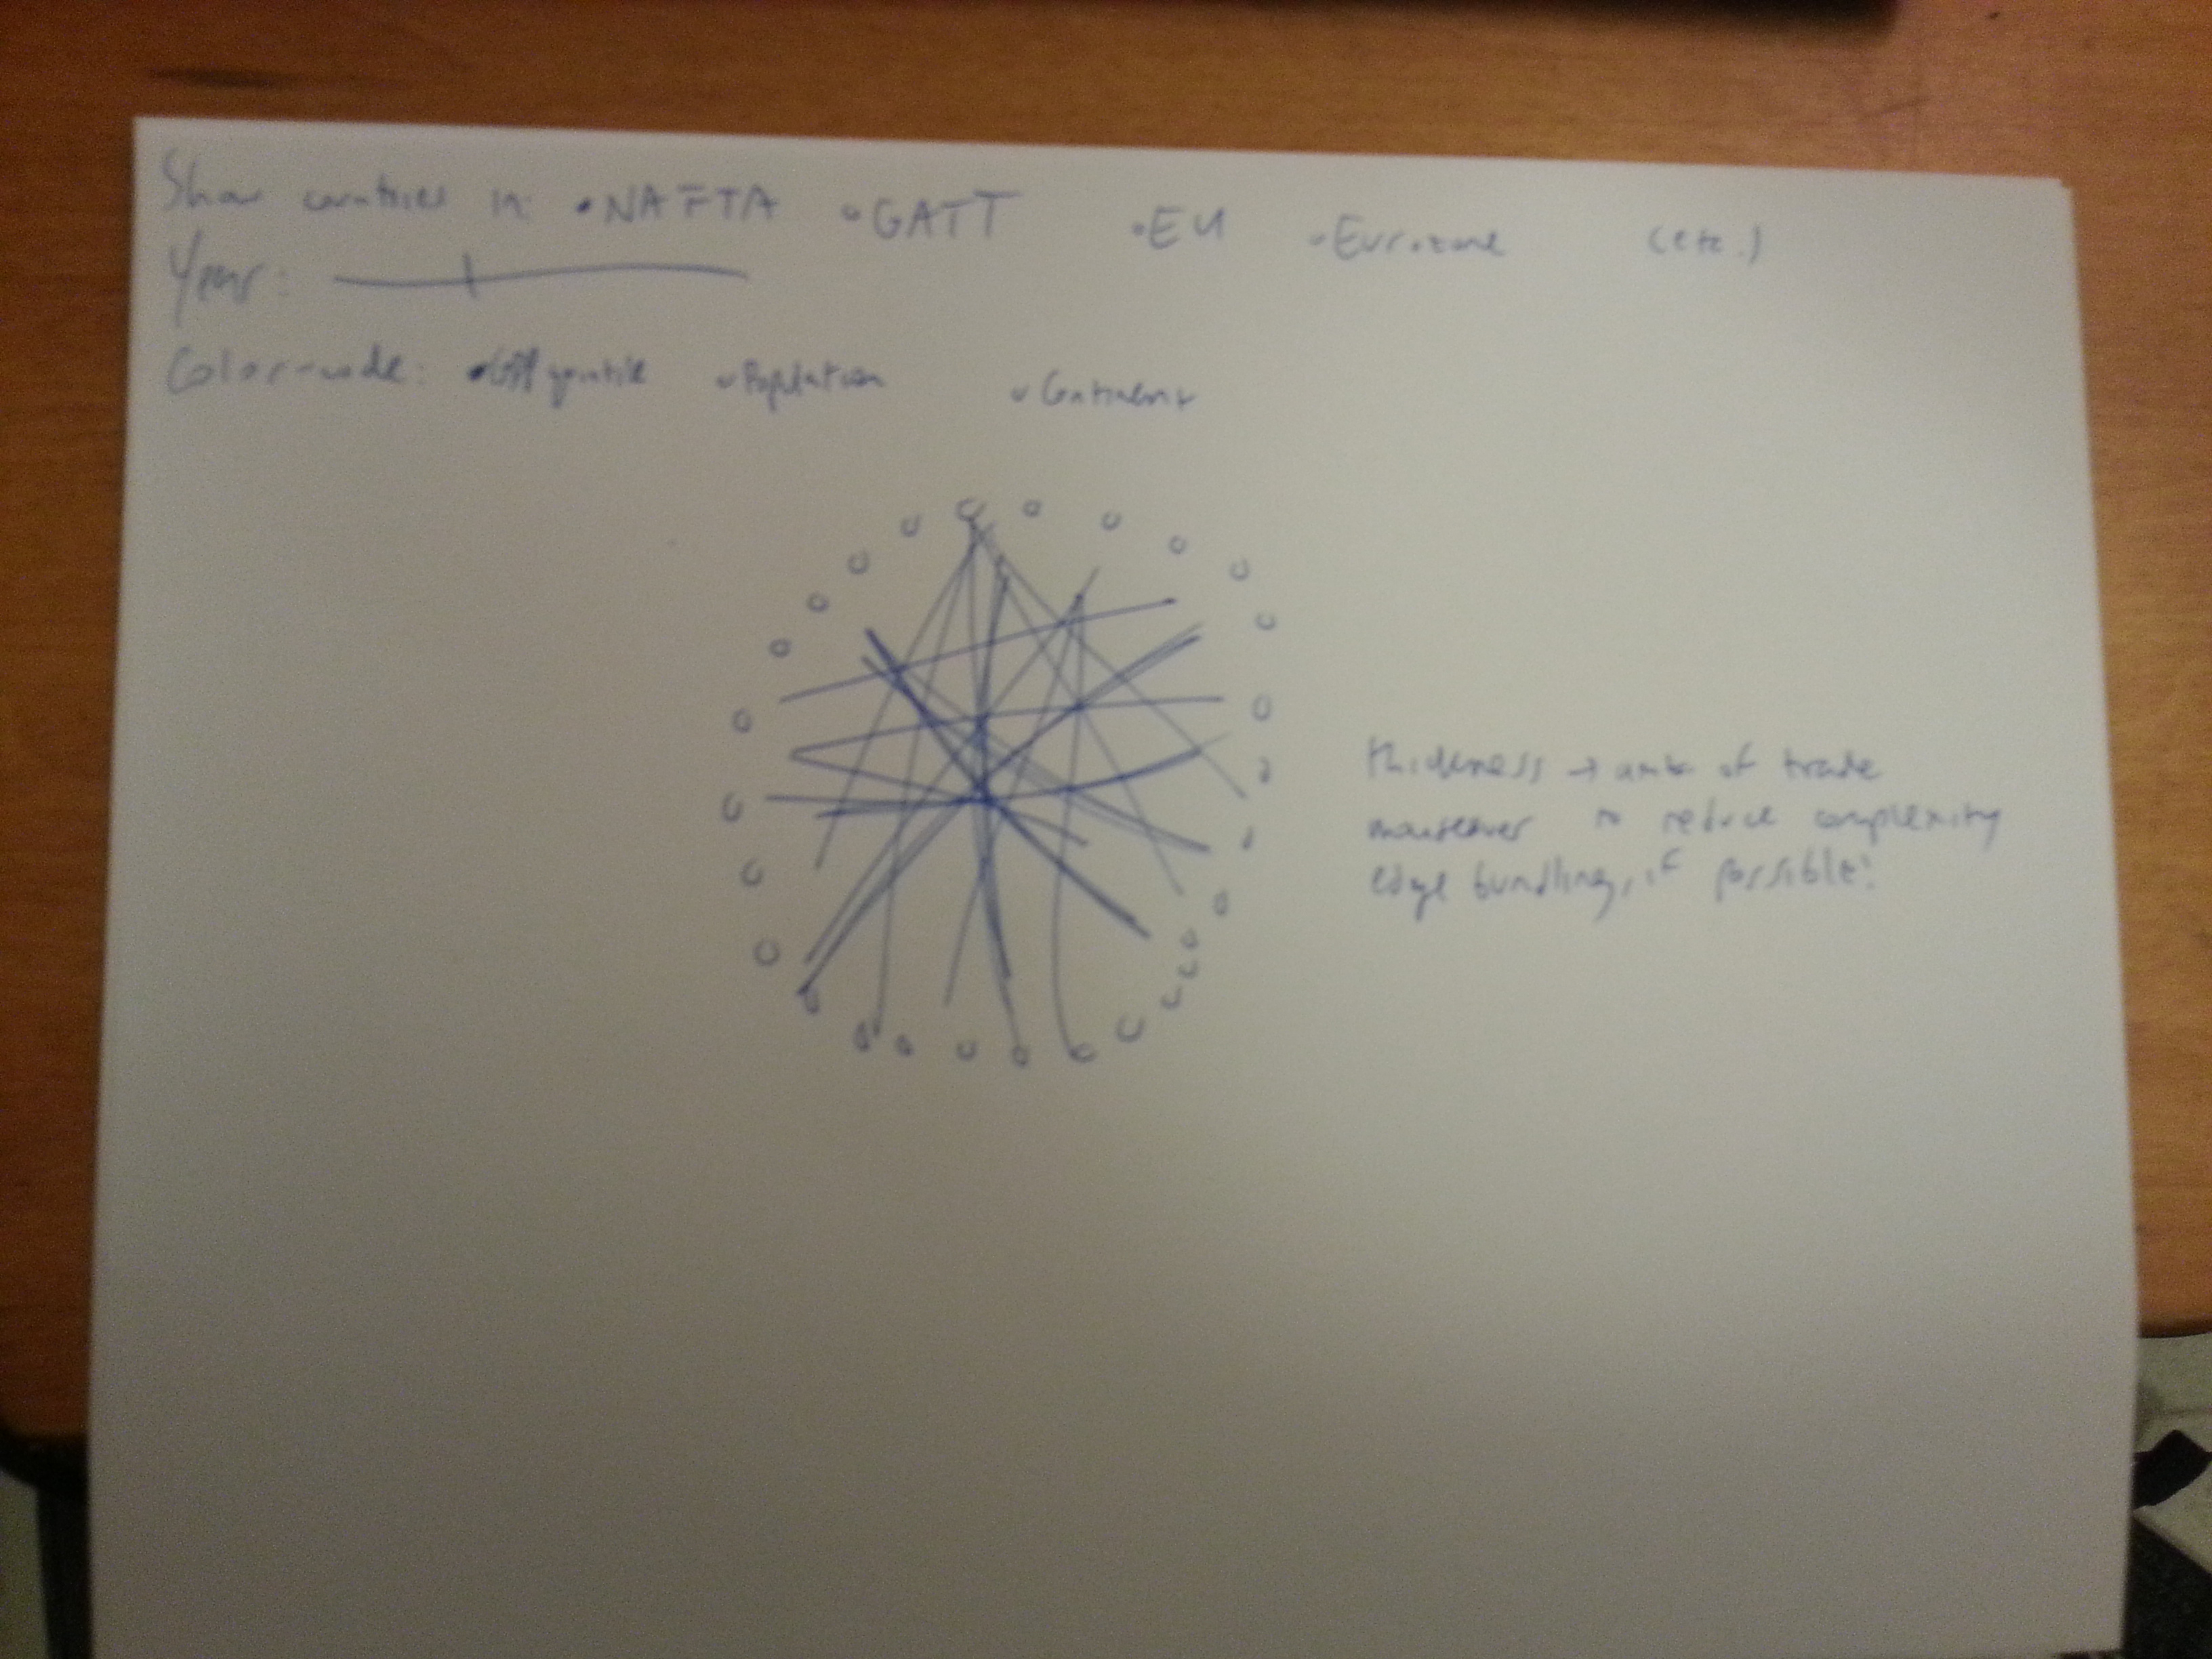 Show countries in: •NAFTA oGATT oEU oEurozone (etc.)
Year:
Color-code: • quintile oPopulation oContinent
thickness → amt of trade
mouseover to reduce complexity
edge bundling, if possible?